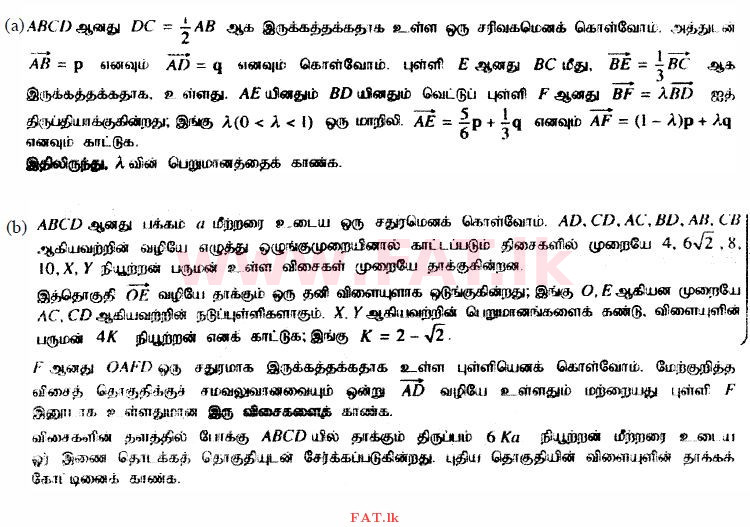 (a) ABCD ஆனது DC = 1/2 AB ஆக இருக்கத்தக்கதாக உள்ள ஒரு சரிவகமெனக் கொள்வோம். அத்துடன்
AB→ = p எனவும் AD→ = q எனவும் கொள்வோம். புள்ளி E ஆனது BC மீது, BE→ = 1/3 BC→ ஆக
இருக்கத்தக்கதாக, உள்ளது. AE யினதும் BD யினதும் வெட்டுப் புள்ளி F ஆனது BF→ = λBD→ ஐத்
திருப்தியாக்குகின்றது; இங்கு λ(0 < λ < 1) ஒரு மாறிலி. AE→ = 5/6 p + 1/3 q எனவும் AF→ = (1 – λ)p + λq
எனவும் காட்டுக.
இதிலிருந்து, λ வின் பெறுமானத்தைக் காண்க.
(b) ABCD ஆனது பக்கம் a மீற்றரை உடைய ஒரு சதுரமெனக் கொள்வோம். AD, CD, AC, BD, AB, CB
ஆகியவற்றின் வழியே எழுத்து ஒழுங்குமுறையினால் காட்டப்படும் திசைகளில் முறையே 4, 6√2 , 8,
10, X, Y நியூற்றன் பருமன் உள்ள விசைகள் முறையே தாக்குகின்றன.
இத்தொகுதி OE→ வழியே தாக்கும் ஒரு தனி விளையுளாக ஒடுங்குகின்றது; இங்கு O, E ஆகியன முறையே
AC, CD ஆகியவற்றின் நடுப்புள்ளிகளாகும். X, Y ஆகியவற்றின் பெறுமானங்களைக் கண்டு, விளையுளின்
பருமன் 4K நியூற்றன் எனக் காட்டுக; இங்கு K = 2 – √2 .
F ஆனது OAFD ஒரு சதுரமாக இருக்கத்தக்கதாக உள்ள புள்ளியெனக் கொள்வோம். மேற்குறித்த
விசைத் தொகுதிக்குச் சமவலுவானவையும் ஒன்று AD→ வழியே உள்ளதும் மற்றையது புள்ளி F
இனூடாக உள்ளதுமான இரு விசைகளைக் காண்க.
விசைகளின் தளத்தில் போக்கு ABCD யில் தாக்கும் திருப்பம் 6 Ka நியூற்றன் மீற்றரை உடைய
ஓர் இணை தொடக்கத் தொகுதியுடன் சேர்க்கப்படுகின்றது. புதிய தொகுதியின் விளையுளின் தாக்கக்
கோட்டினைக் காண்க.
www.FAT.lk
FAT.lk